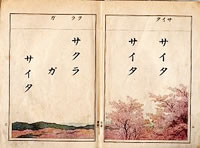 サイタ
サイタ
サイタ
サクラ
ガ
サイタ